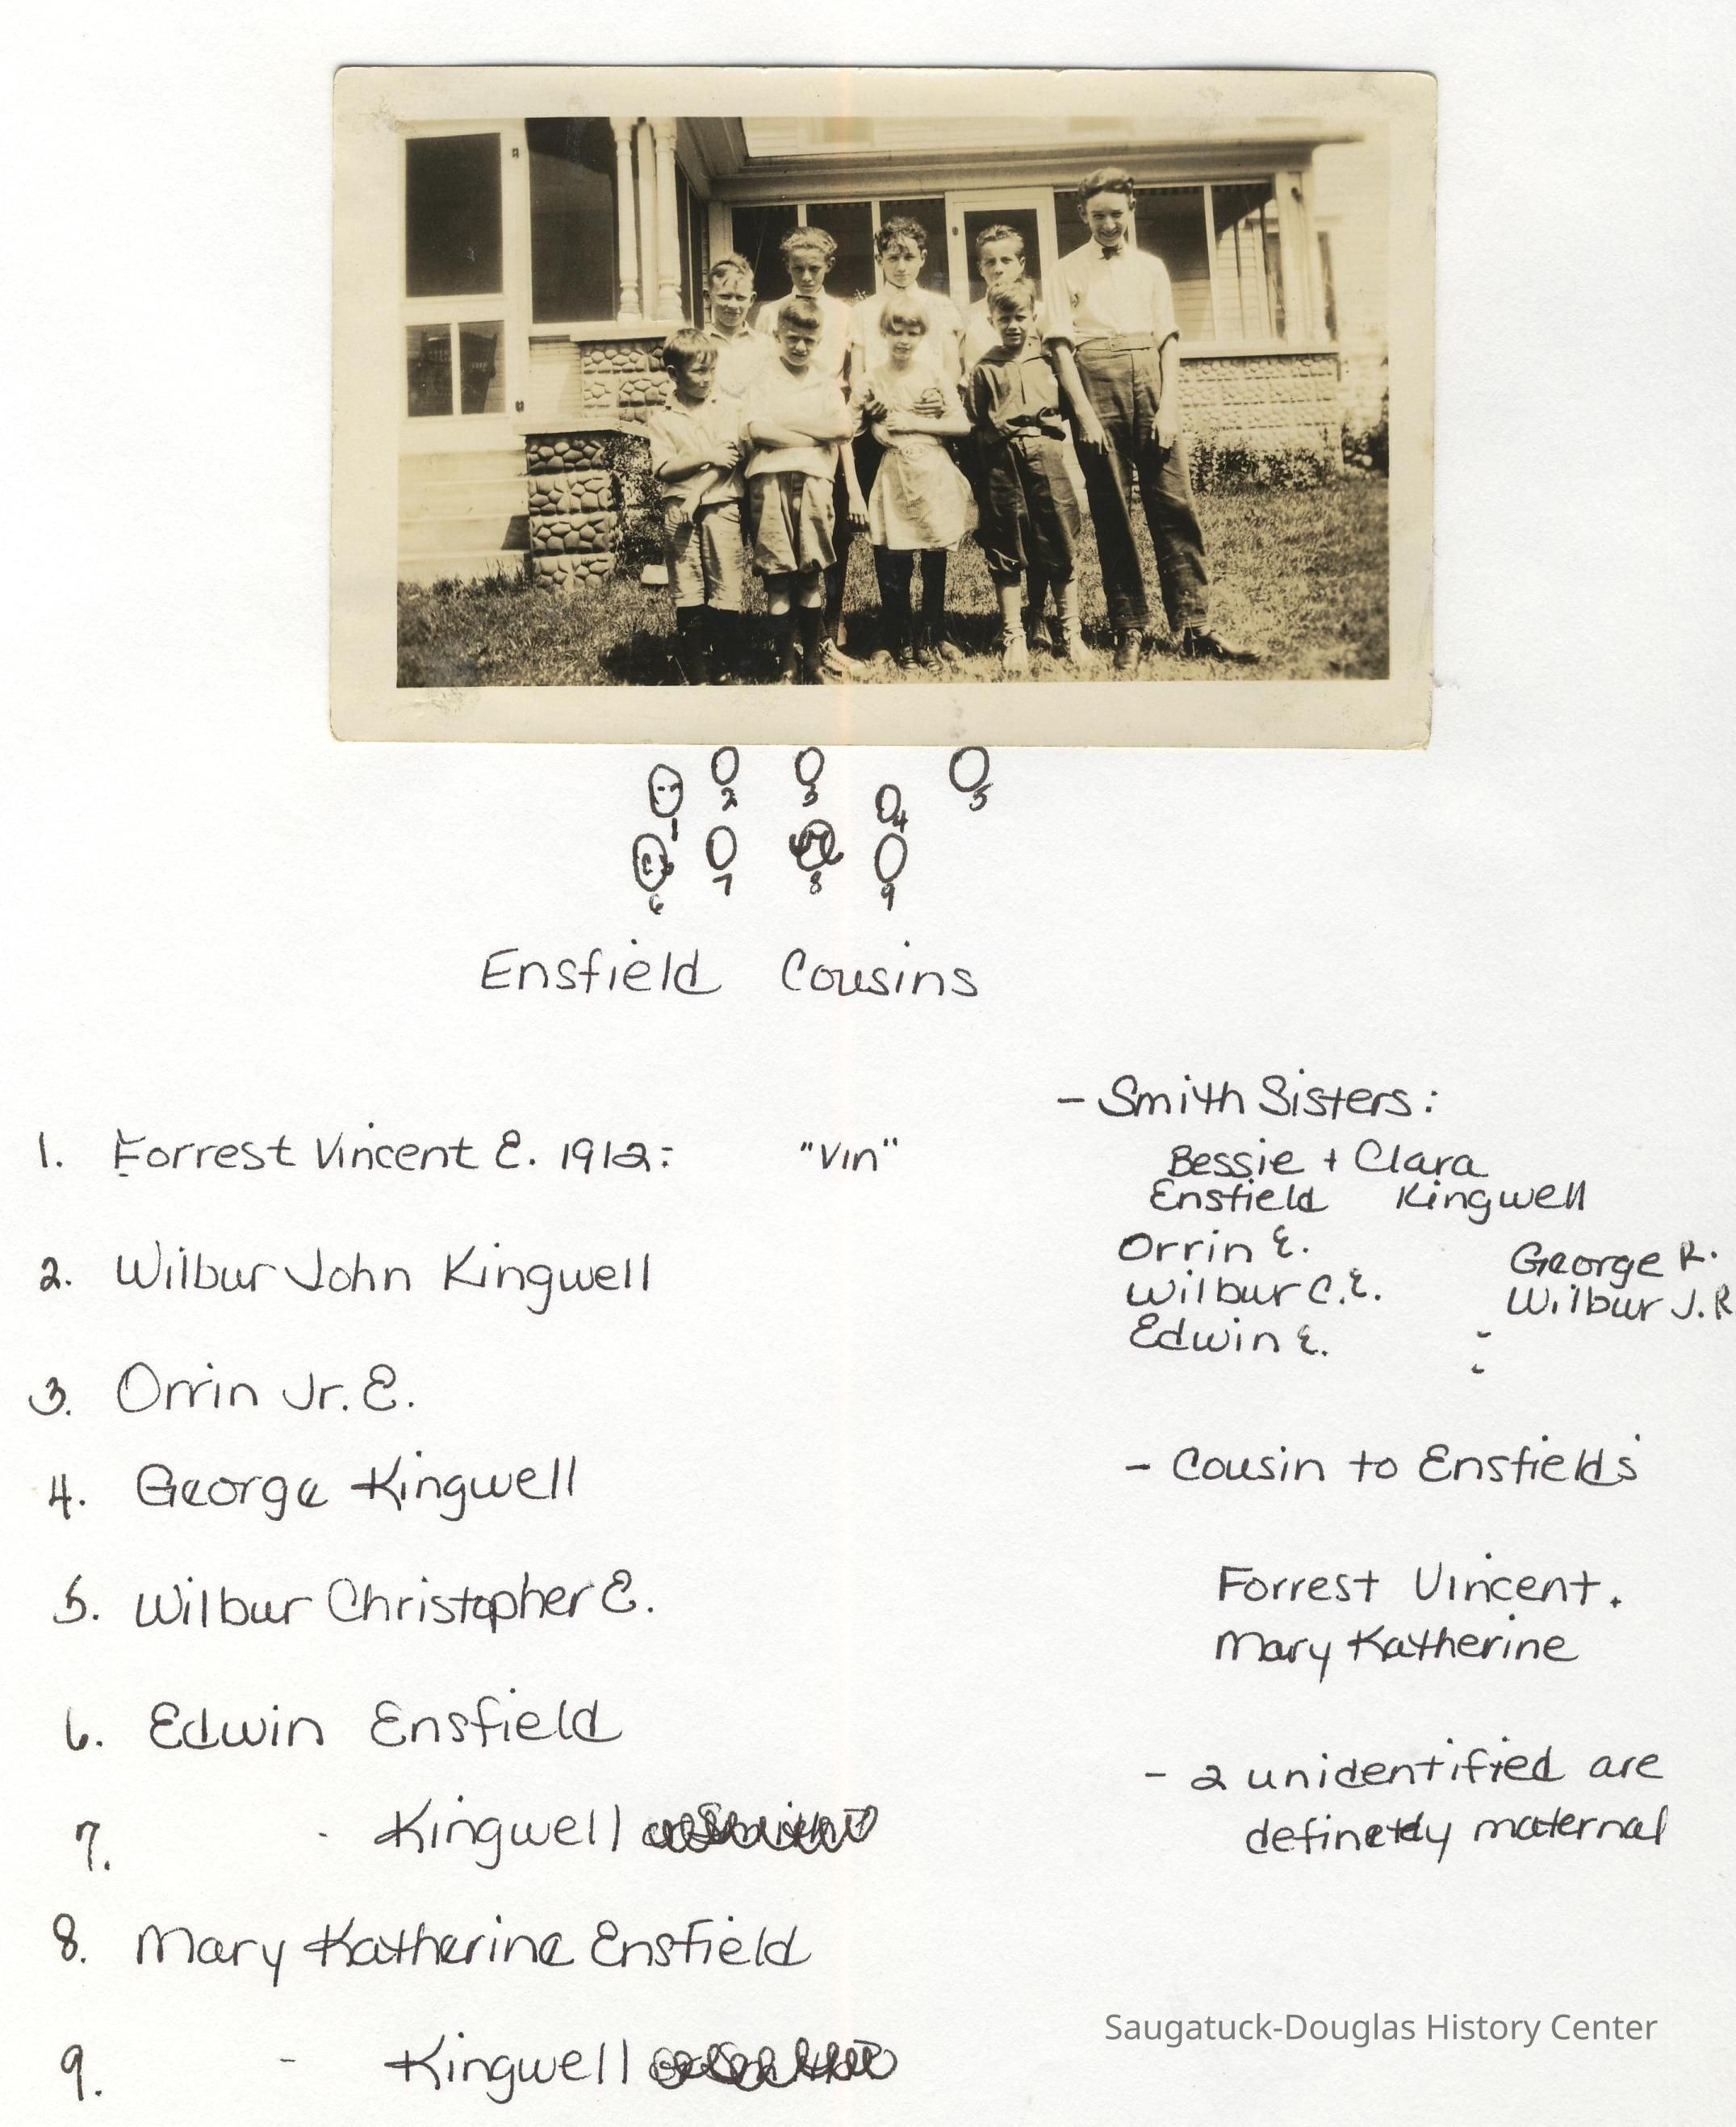 1
2
3
4
5
6
7
8
9
Ensfield Cousins
1. Forrest Vincent E. 1912- "Vin"
2. Wilbur John Kingwell
3. Orrin Jr. E.
4. George Kingwell
5. Wilbur Christopher E.
6. Edwin Ensfield
7. - Kingwell
8. Mary Katherine Ensfield
9. - Kingwell
- Smith Sisters:
Bessie + Clara
Ensfield Kingwell
Orrin E.
George R.
Wilbur C.E.
Wilbur J.R
Edwin E. -
-
- Cousin to Ensfields
Forrest Vincent.
Mary Katherine
- 2 unidentified are
definetely maternal
Saugatuck-Douglas History Center